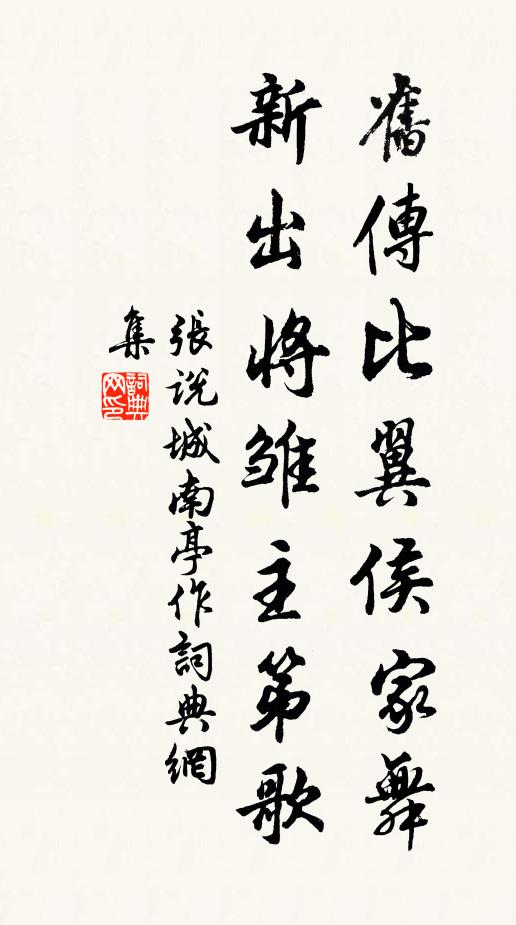 舊傳比翼侯家舞
新出將雛主第歌
張說城南亭作詞典網
集
詞典
网印